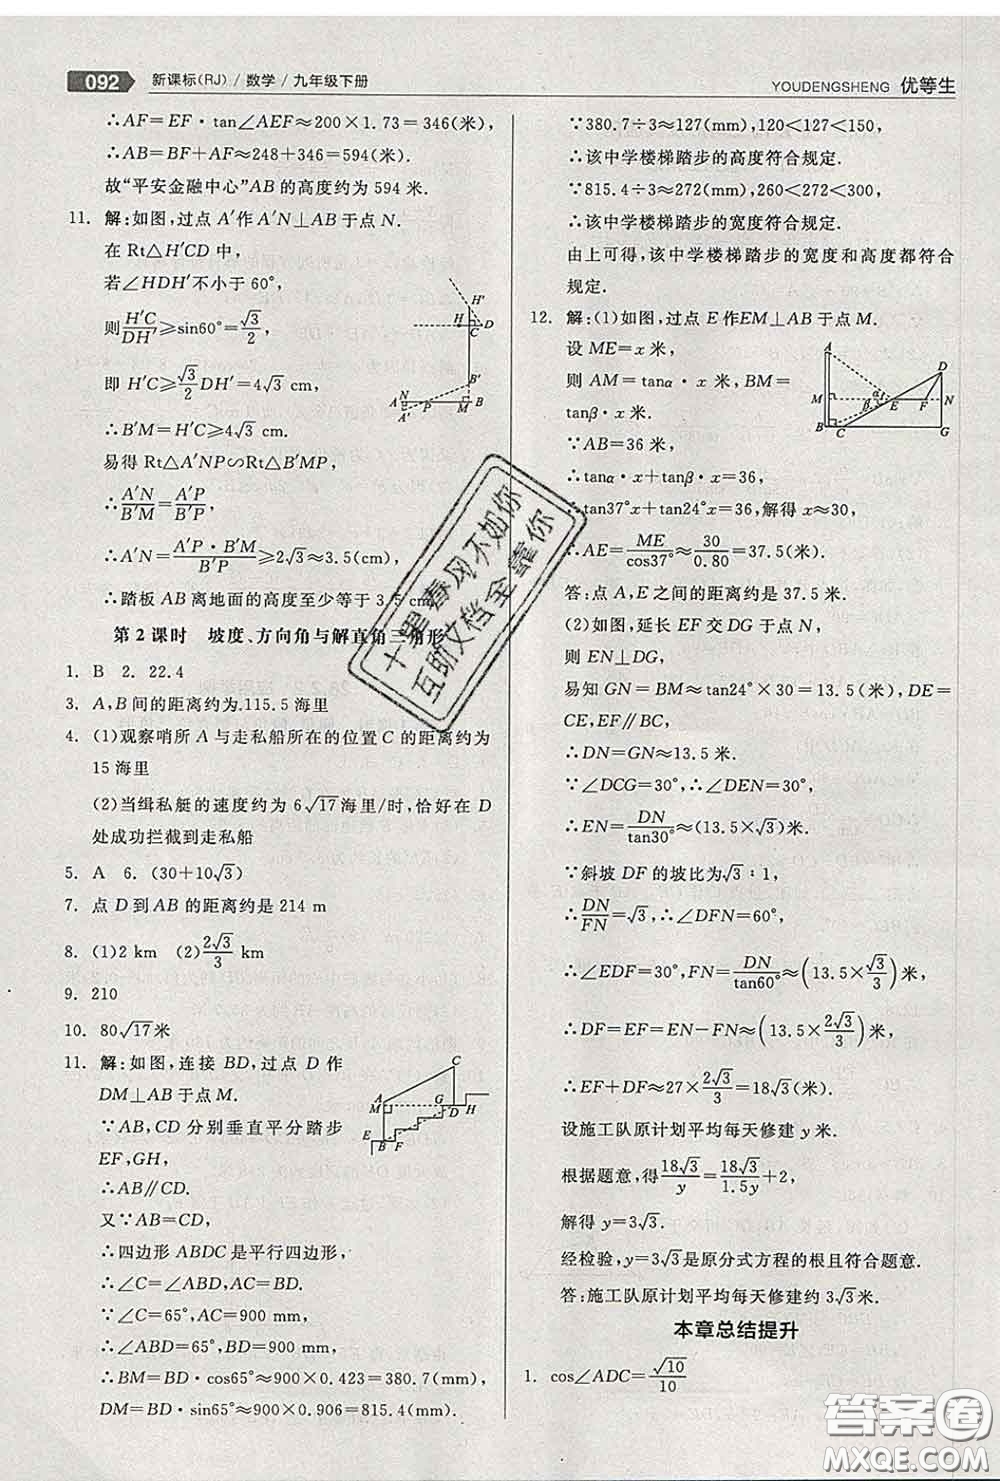 092 新课标(RJ)/数学/九年级下册
YOUDENGSHENG 优等生
∴AF=EF·tan∠AEF≈200×1.73=346(米),
∴AB=BF+AF≈248+346=594(米).
故“平安金融中心”AB的高度约为594米.
11. 解:如图,过点A′作A′N⊥AB于点N.
在Rt△H′CD中,
若∠HDH′不小于60°,
则H′C/DH′≥sin60°=√3/2,
即H′C≥√3/2 DH′=4√3 cm,
∴B′M=H′C≥4√3 cm.
易得Rt△A′NP∽Rt△B′MP,
∴A′N/B′M=A′P/B′P,
∴A′N=A′P·B′M/B′P≥2√3≈3.5(cm),
∴踏板AB离地面的高度至少等于3.5 cm.
第2课时 坡度、方向角与解直角三角形
1. B 2. 22.4
3. A,B间的距离约为115.5海里
4. (1)观察哨所A与走私船所在的位置C的距离约为
15海里
(2)当缉私艇的速度约为6√17海里/时,恰好在D
处成功拦截到走私船
5. A 6. (30+10√3)
7. 点D到AB的距离约是214 m
8. (1)2 km (2)2√3/3 km
9. 210
10. 80√17米
11. 解:如图,连接BD,过点D作
DM⊥AB于点M.
∵AB,CD分别垂直平分踏步
EF,GH,
∴AB∥CD.
又∵AB=CD,
∴四边形ABDC是平行四边形,
∴∠C=∠ABD,AC=BD.
∵∠C=65°,AC=900 mm,
∴∠ABD=65°,BD=900 mm,
∴BM=BD·cos65°≈900×0.423=380.7(mm),
DM=BD·sin65°≈900×0.906=815.4(mm).
∵380.7÷3≈127(mm),120<127<150,
∴该中学楼梯踏步的高度符合规定.
∵815.4÷3≈272(mm),260<272<300,
∴该中学楼梯踏步的宽度符合规定.
由上可得,该中学楼梯踏步的宽度和高度都符合
规定.
12. 解:(1)如图,过点E作EM⊥AB于点M.
设ME=x米,
则AM=tanα·x米,BM=
tanβ·x米.
∵AB=36米,
∴tanα·x+tanβ·x=36,
∴tan37°x+tan24°x=36,解得x≈30,
∴AE=ME/cos37°≈30/0.80=37.5(米).
答:点A,E之间的距离约是37.5米.
(2)如图,延长EF交DG于点N,
则EN⊥DG.
易知GN=BM≈tan24°×30=13.5(米),DE=
CE,EF∥BC,
∴DN=GN≈13.5米.
∵∠DCG=30°,∴∠DEN=30°,
∴EN=DN/tan30°≈(13.5×√3)米.
∵斜坡DF的坡比为√3∶1,
∴DN/FN=√3,∴∠DFN=60°,
∴∠EDF=30°,FN=DN/tan60°≈(13.5×√3/3)米,
∴DF=EF=EN-FN≈(13.5×2√3/3)米,
∴EF+DF≈27×2√3/3=18√3(米).
设施工队原计划平均每天修建y米.
根据题意,得18√3/y=18√3/1.5y+2,
解得y=3√3.
经检验,y=3√3是原分式方程的根且符合题意.
答:施工队原计划平均每天修建约3√3米.
本章总结提升
1. cos∠ADC=√10/10
十里春风不如你
互助文档全靠你
答案圈
MXQE.COM